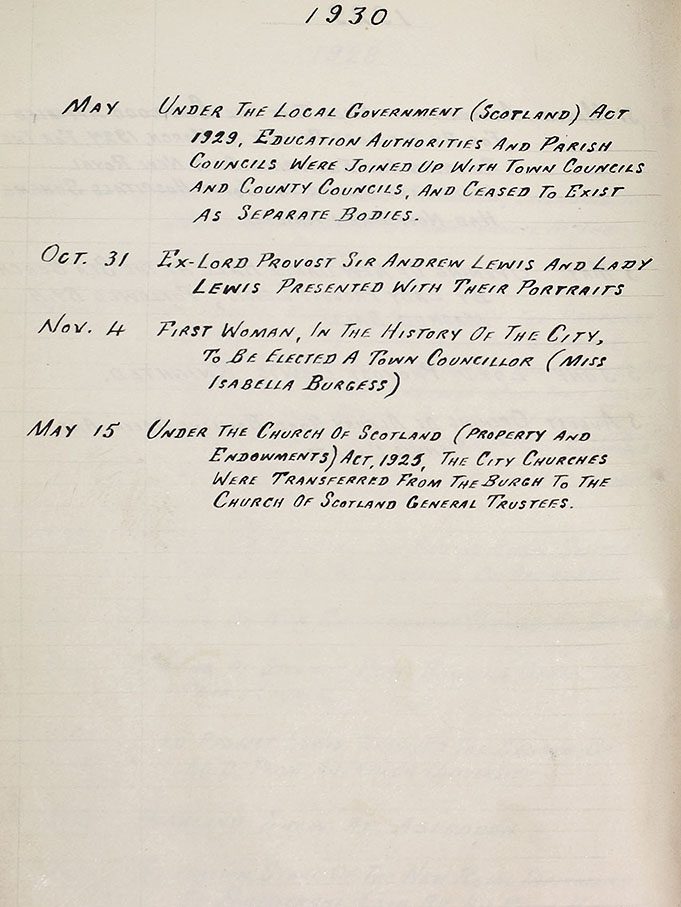 1930
MAY UNDER THE LOCAL GOVERNMENT (SCOTLAND) ACT
1929, EDUCATION AUTHORITIES AND PARISH
COUNCILS WERE JOINED UP WITH TOWN COUNCILS
AND COUNTY COUNCILS, AND CEASED TO EXIST
AS SEPARATE BODIES.
OCT. 31 EX-LORD PROVOST SIR ANDREW LEWIS AND LADY
LEWIS PRESENTED WITH THEIR PORTRAITS
NOV. 4 FIRST WOMAN, IN THE HISTORY OF THE CITY,
TO BE ELECTED A TOWN COUNCILLOR (MISS
ISABELLA BURGESS)
MAY 15 UNDER THE CHURCH OF SCOTLAND (PROPERTY AND
ENDOWMENTS) ACT, 1925, THE CITY CHURCHES
WERE TRANSFERRED FROM THE BURGH TO THE
CHURCH OF SCOTLAND GENERAL TRUSTEES.